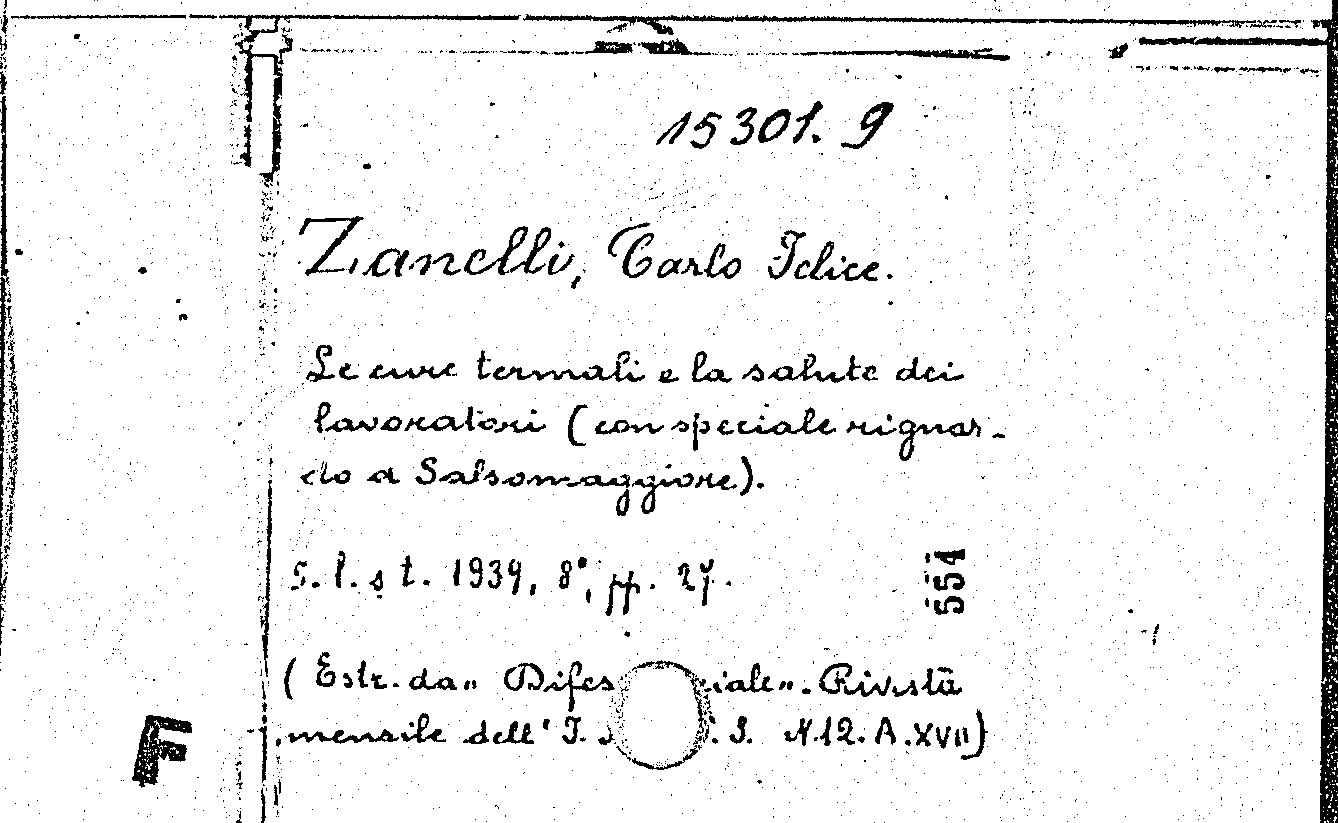 15301. 9
Zanelli, Carlo Felice.
Le cure termali e la salute dei
lavoratori (con speciale riguar-
do a Salsomaggiore).
s. l. s t. 1939, 8°, pp. 27.
554
(Estr. da „ Difes iale„. Rivista
mensile dell' I. S. N.12. A.XVII)
F